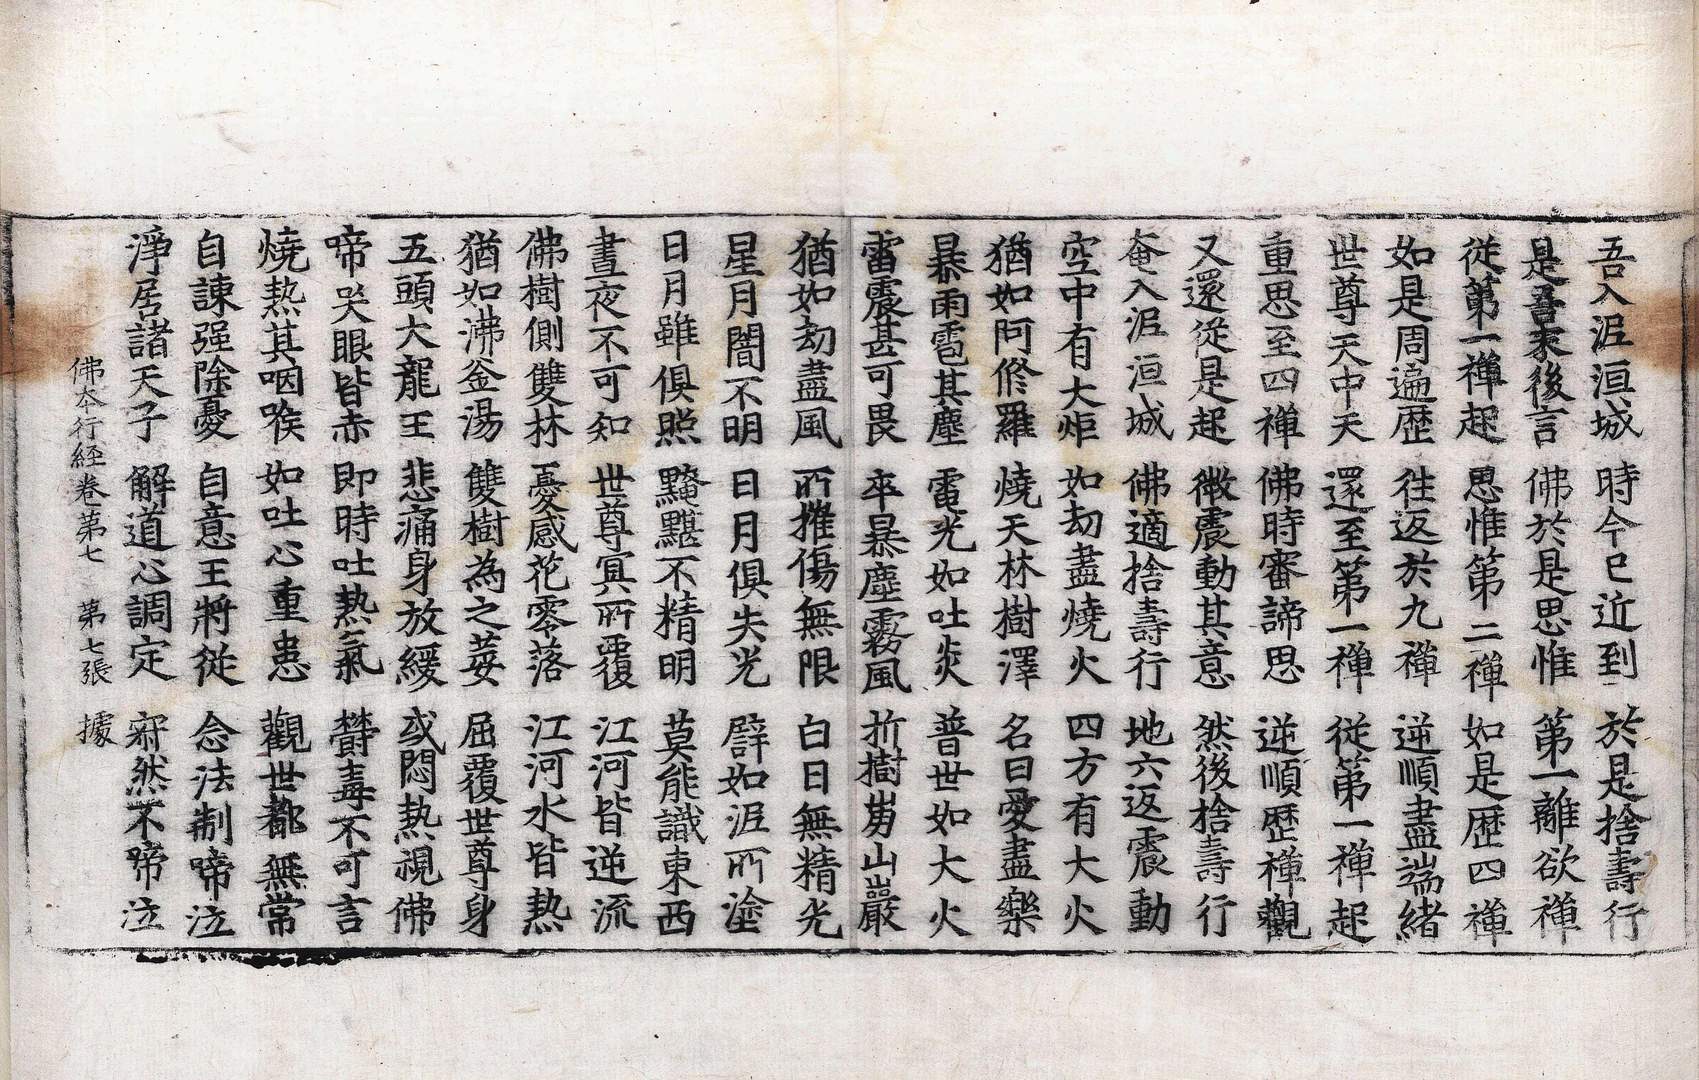 吾入泥洹城 時今已近到 於是捨壽行
是吾末後言 佛於是思惟 第一離欲禪
從第一禪起 思惟第二禪 如是歷四禪
如是周遍歷 往返於九禪 逆順盡端緒
世尊天中天 還至第一禪 從第一禪起
重思至四禪 佛時審諦思 逆順歷禪觀
又還從是起 微震動其意 然後捨壽行
奄入泥洹城 佛適捨壽行 地六返震動
空中有大炬 如劫盡燒火 四方有大火
猶如阿修羅 燒天林樹澤 名曰愛盡樂
暴雨雹其塵 電光如吐炎 普世如大火
雷震甚可畏 卒暴塵霧風 折樹崩山巖
猶如劫盡風 所摧傷無限 白日無精光
星月闇不明 日月俱失光 譬如泥所塗
日月雖俱照 黤黮不精明 莫能識東西
晝夜不可知 世尊冥所覆 江河皆逆流
佛樹側雙林 憂感花零落 江河水皆熱
猶如沸釜湯 雙樹為之萎 屈覆世尊身
五頭大龍王 悲痛身放緩 或悶熱視佛
啼哭眼皆赤 即時吐熱氣 欝毒不可言
燒熱其咽喉 如吐心重患 觀世都無常
自諫强除憂 自意王將從 念法制啼泣
淨居諸天子 解道心調定 寂然不啼泣
佛本行経卷第七 第七張 據